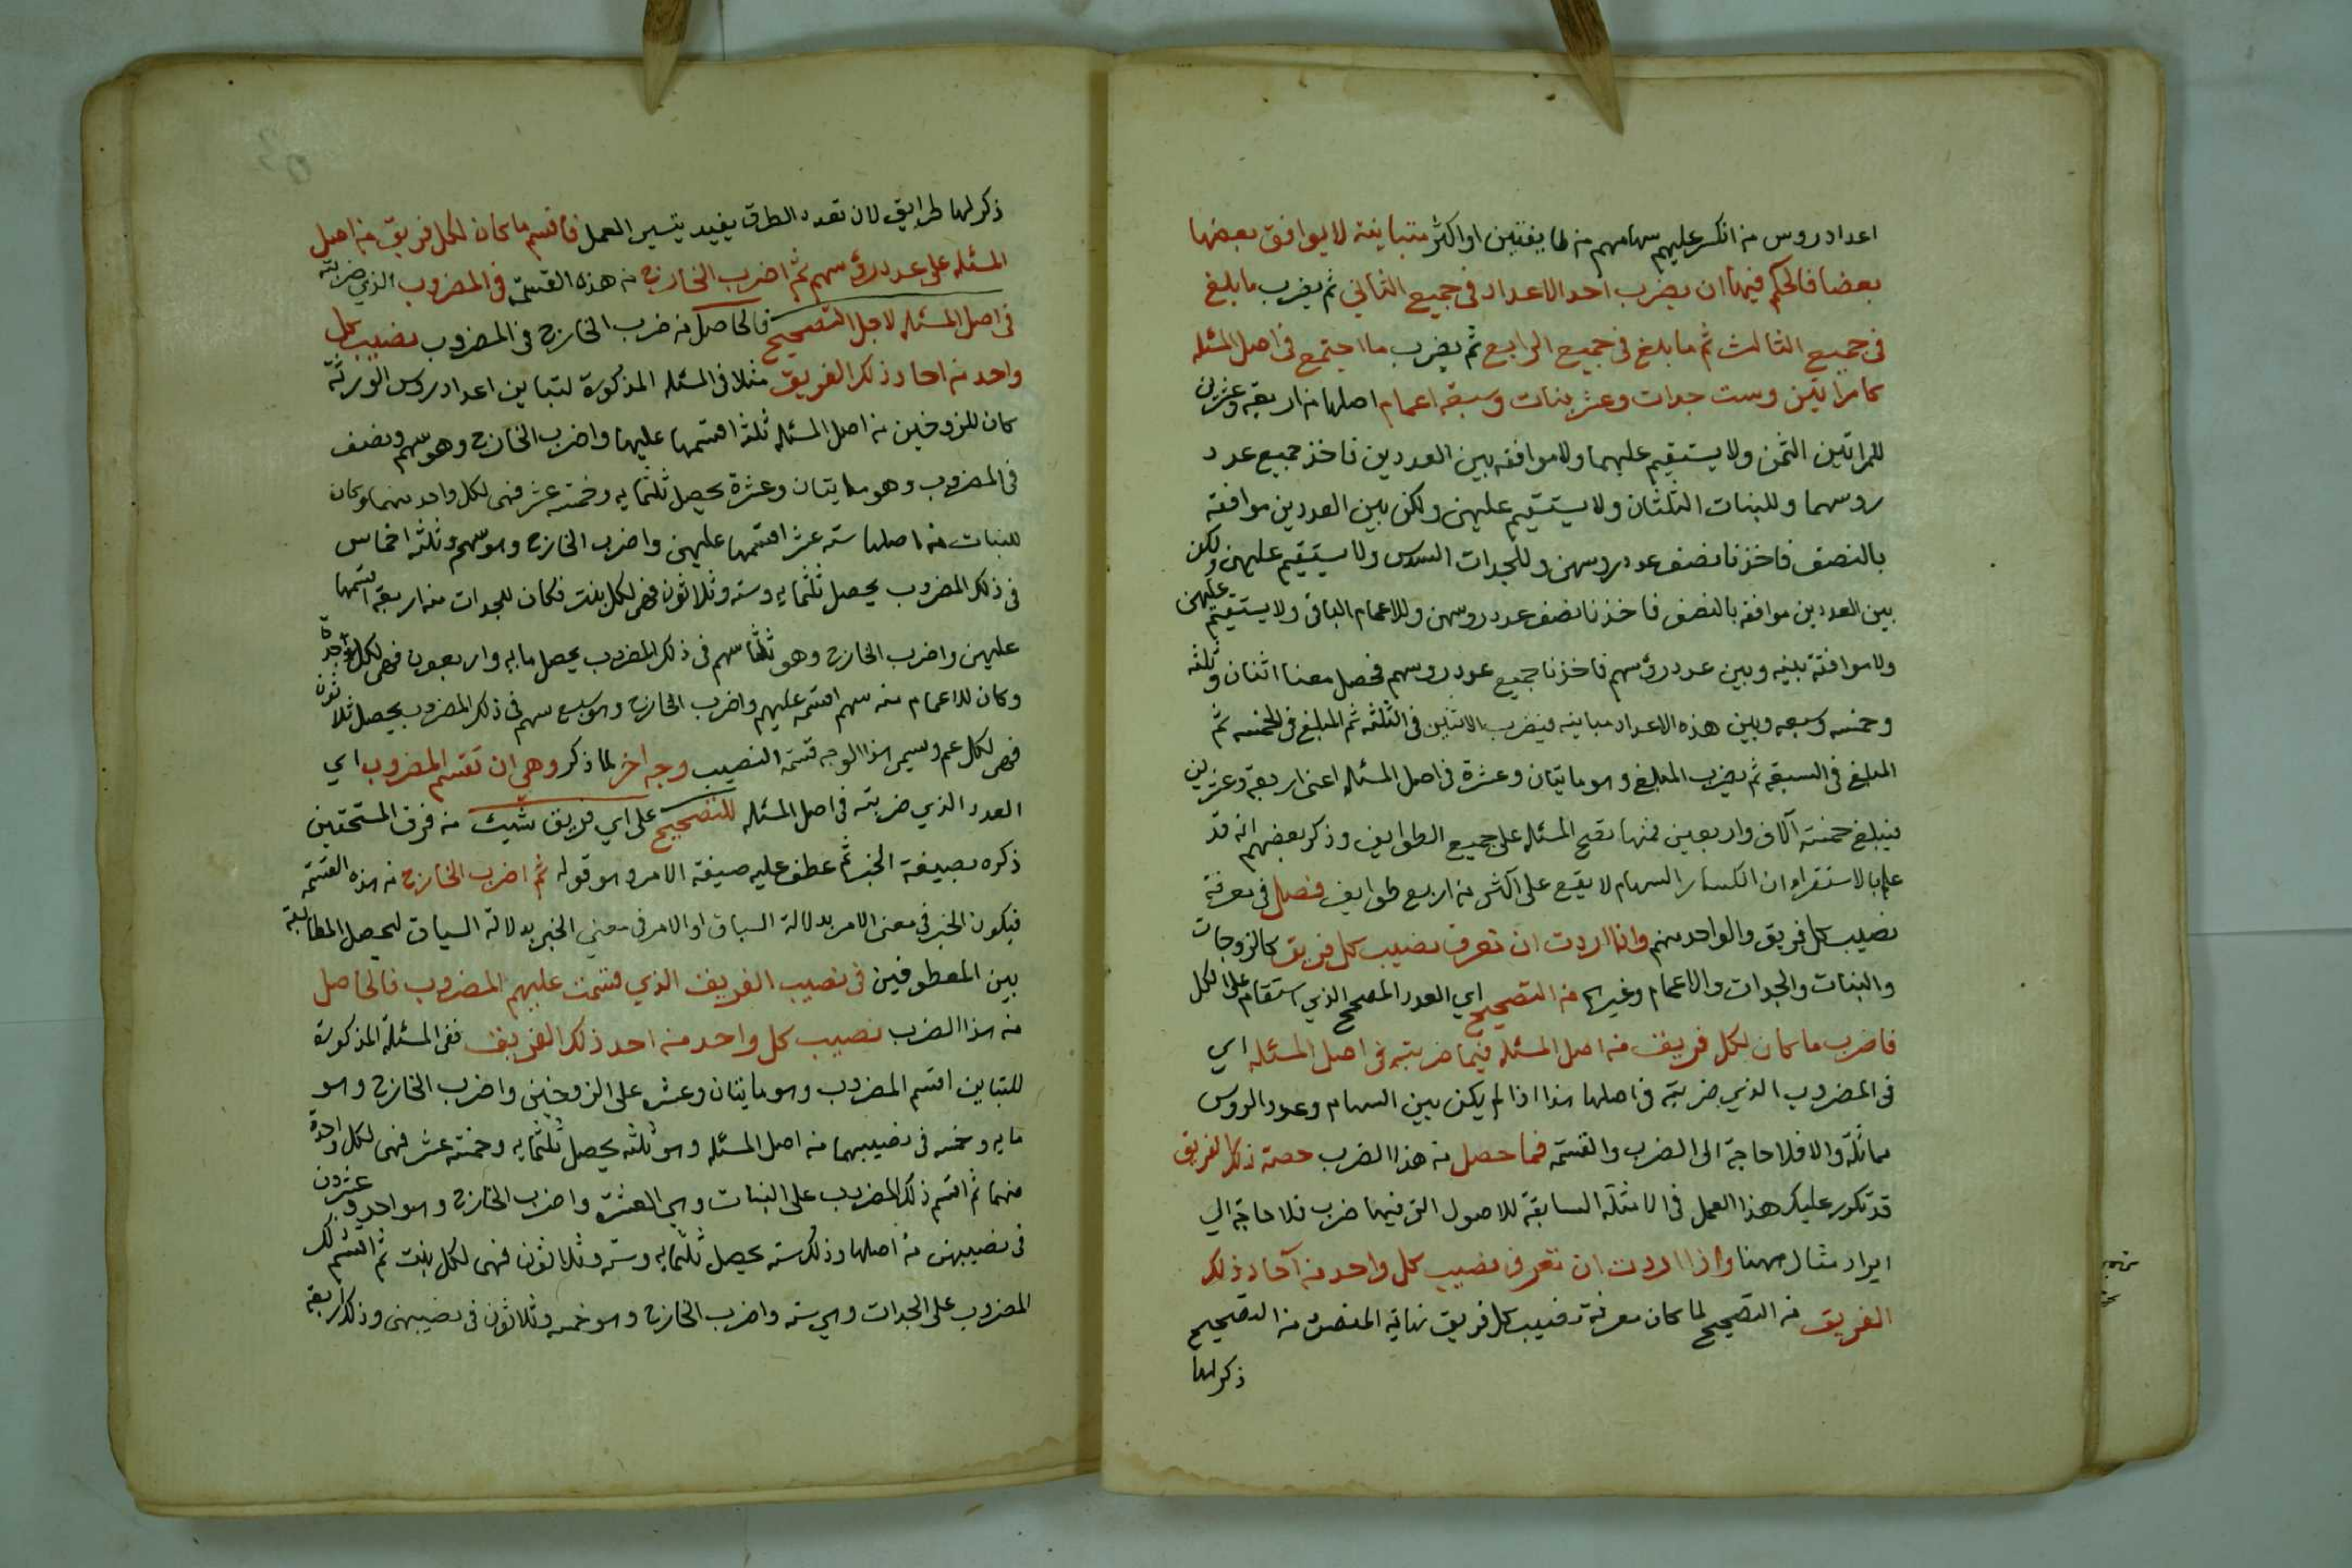 اعداد روس من انكسر عليهم سهامهم من طايفتين او اكثر متباينة لا يوافق بعضها
بعضا فالحكم فيها ان يضرب احد الاعداد في جميع الثاني ثم يضرب ما بلغ
في جميع الثالث ثم ما بلغ في جميع الرابع ثم يضرب ما اجتمع في اصل المسئله
كامراتين وست جدات وعشر بنات وسبعة اعمام اصلها من اربعة وعشرين
للمراتين الثمن ولا يستقيم عليهما ولا موافقه بين العددين فاخذ جميع عدد
روسهما وللبنات الثلثان ولا يستقيم عليهن ولكن بين العددين موافقه
بالنصف فاخذنا نصف عدد روسهن وللجدات السدس ولا يستقيم عليهن ولكن
بين العددين موافقه بالنصف فاخذنا نصف عدد روسهن وللاعمام الباقي ولا يستقيم عليهن
ولا موافقة بينه وبين عدد رؤسهم فاخذنا جميع عدد روسهم فحصل معنا اثنان وثلثه
وخمسه وسبعه وبين هذه الاعداد مباينه فيضرب الاثنين في الثلثه ثم المبلغ في الخمسه ثم
المبلغ في السبعة ثم يضرب المبلغ وهو مايتان وعشرة في اصل المسئله اعني اربعة وعشرين
فيبلغ خمسة آلاف واربعين فمنها تصح المسئله على جميع الطوايف وذكر بعضهم انه قد
علم بالاستقراء ان انكسار السهام لا يقع على اكثر من اربع طوايف فصل في معرفة
نصيب كل فريق والواحد منهم واذا اردت ان تعرف نصيب كل فريق كالزوجات
والبنات والجدات والاعمام وغيرها من التصحيح اي العدد المصحح الذي استقام على الكل
فاضرب ما كان لكل فريق من اصل المسئله فيما ضربته في اصل المسئله اي
في المضروب الذي ضربته في اصلها هذا اذا لم يكن بين السهام وعدد الروس
مماثلة والا فلا حاجة الى الضرب والقسمة فما حصل من هذا الضرب حصة ذلك الفريق
قد تكرر عليك هذا العمل في الامثلة السابقة للاصول التي فيها ضرب فلا حاجة الي
ايراد مثال ههنا واذا اردت ان تعرف نصيب كل واحد من آحاد ذلك
الفريق من التصحيح لما كان معرفة نصيب كل فريق نهاية المقصود من التصحيح
ذكر لها
ذكر لها طرايق لان تعدد الطرق يفيد يتسير العمل فاقسم ما كان لكل فريق من اصل
المسئله على عدد رؤسهم ثم اضرب الخارج من هذه القسمة في المضروب الذي ضربته
في اصل المسئله لاجل التصحيح فالحاصل من ضرب الخارج في المضروب نصيب كل
واحد من احاد ذلك الفريق مثلا في المسئله المذكورة لتباين اعداد روس الورثة
كان للزوجين من اصل المسئله ثلثة اقتسمها عليها واضرب الخارج وهو سهم ونصف
في المضروب وهو مايتان وعشرة يحصل ثلثمايه وخمسة عشر فهي لكل واحد منهما وكان
للبنات من اصلها سته عشر اقسمها عليهن واضرب الخارج وهو سهم وثلثه اخماس
في ذلك المضروب يحصل ثلثمايه وسته وثلاثون فهي لكل بنت فكان للجدات منه اربعة اقسمها
عليهن واضرب الخارج وهو ثلثا سهم في ذلك المضروب يحصل مايه واربعون فهي لكل جدة
وكان للاعمام منه سهم اقسمه عليهم واضرب الخارج وهو سبع سهم في ذلك المضروب يحصل ثلاثون
فهي لكل عم ويسمى هذا الوجه قسمة النصيب وجه اخر لما ذكر وهي ان تقسم المضروب اي
العدد الذي ضربته في اصل المسئله للتصحيح على اي فريق شيت من فرق المستحقين
ذكره بصيغة الخبر ثم عطف عليه صيغة الامر وهو قوله ثم اضرب الخارج من هذه القسمة
فيكون الخبر في معنى الامر بدلالة السباق او الامر في معني الخبر بدلالة السياق ليحصل المطابقة
بين المعطوفين في نصيب الفريق الذي قسمت عليهم المضروب فالحاصل
من هذا الضرب نصيب كل واحد من احد ذلك الفريق ففي المسئلة المذكورة
للتباين اقسم المضروب وهو مايتان وعشره على الزوجتين واضرب الخارج وهو
مايه وخمسه في نصيبهما من اصل المسئله وهو ثلثه يحصل ثلثمايه وخمسة عشر فهي لكل واحدة
منهما ثم اقسم ذلك المضروب على البنات وهي العشرة واضرب الخارج وهو احد وعشرون
في نصيبهن من اصلها وذلك سته يحصل ثلثمايه وسته وثلاثون فهي لكل بنت ثم اقسم ذلك
المضروب على الجدات وهي سته واضرب الخارج وهو خمسه وثلاثون في نصيبهن وذلك اربعة